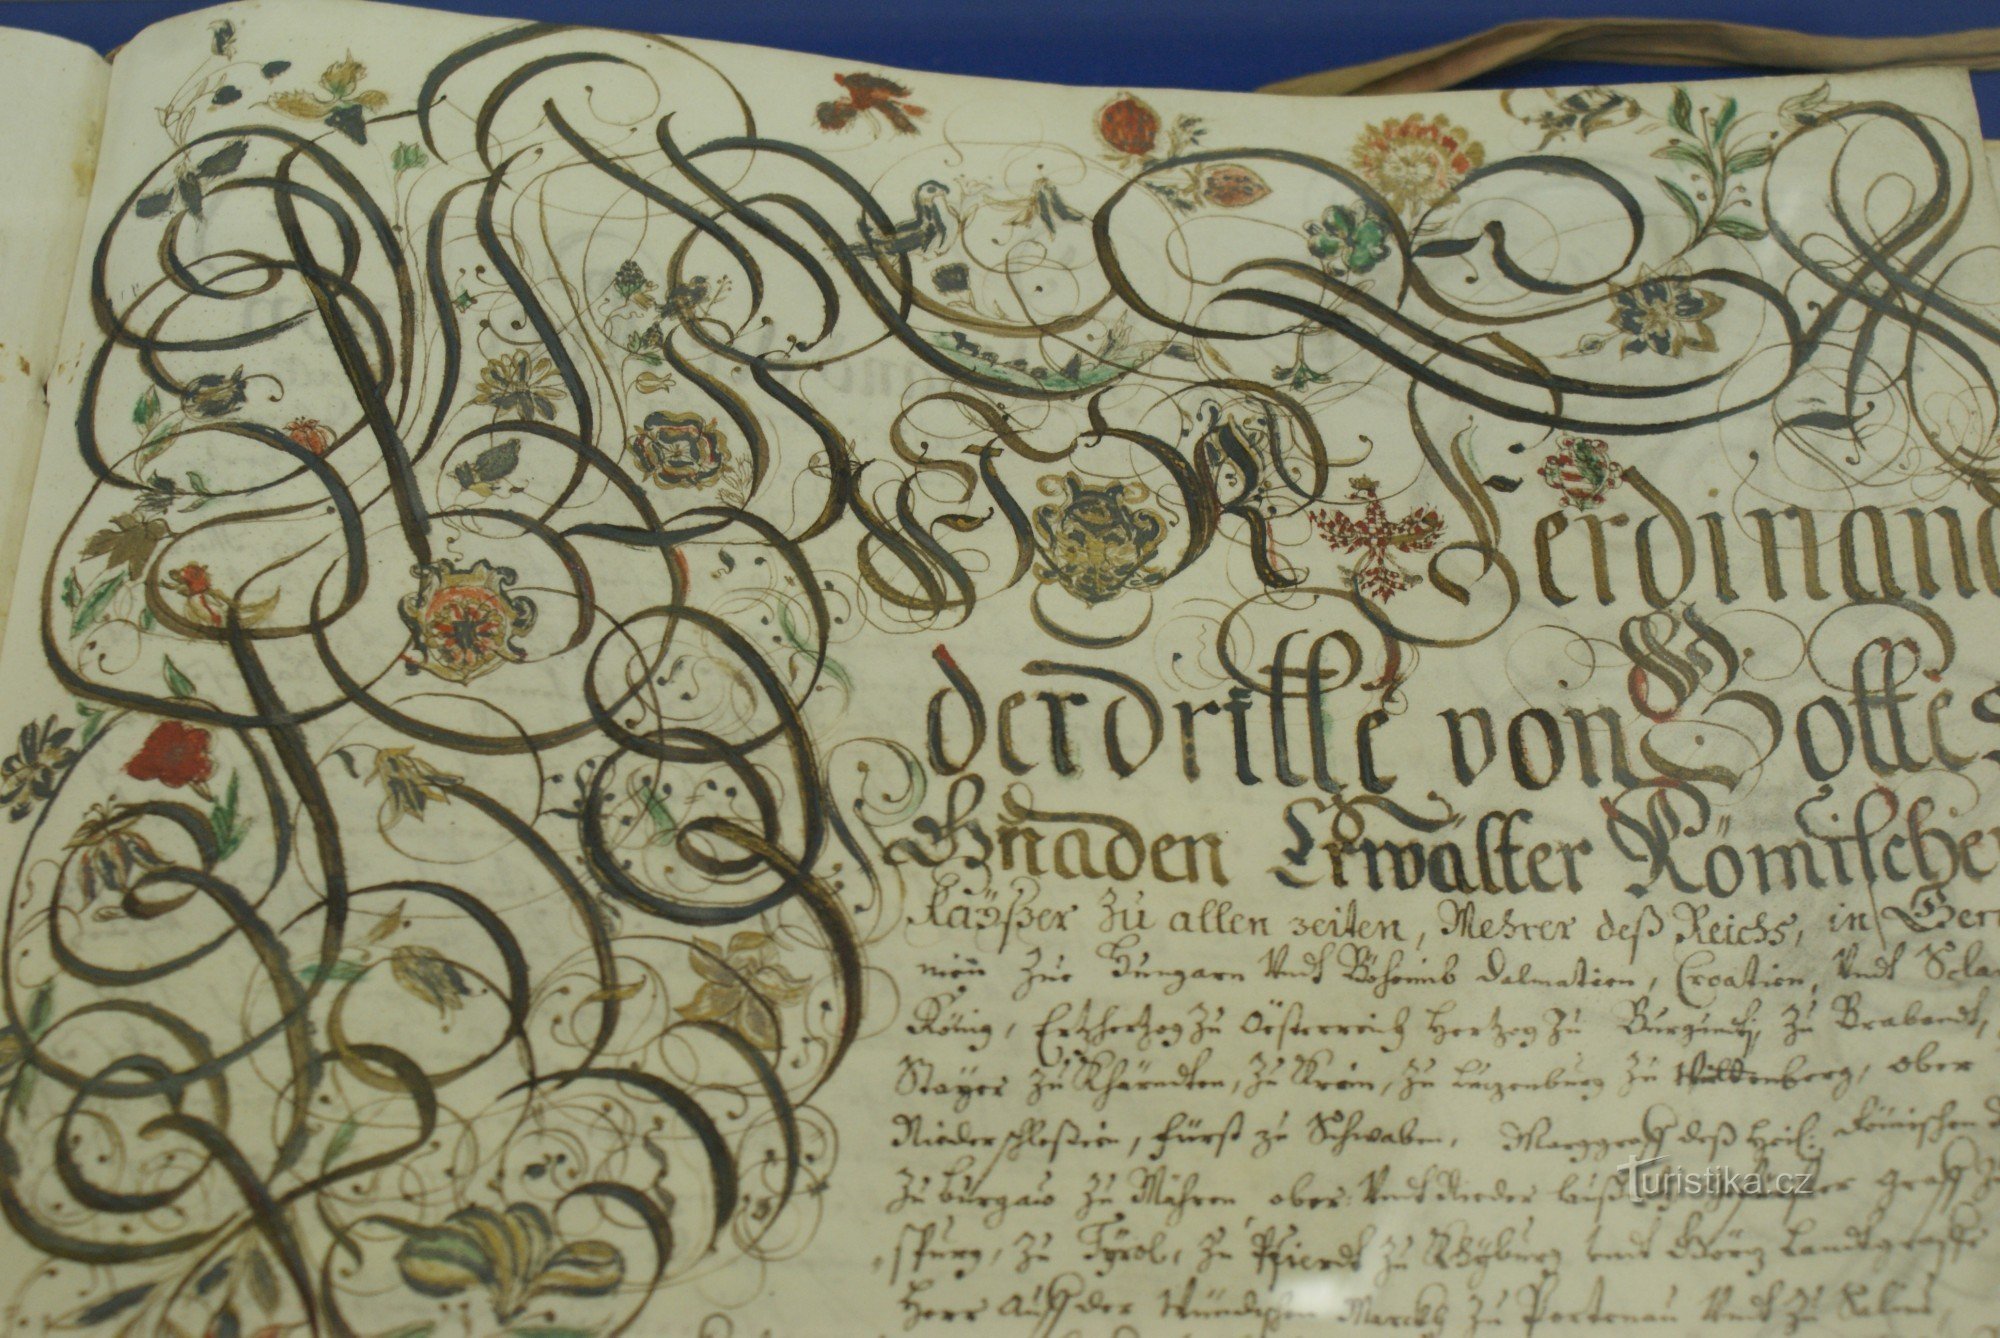 WIR Ferdinand
der dritte von Gottes
Gnaden Erwälter Römischer
Kaÿßer zu allen zeiten, Mehrer deß Reichs, in Ger
nien zue Hungarn Vndt Böheimb Dalmatien, Croatien, Vndt Scla
König, Ertzhertzog zu Oesterreich Hertzog zu Burgundt, zu Brabandt,
Steÿer zu Khärndten, zu Krain, zu Lützenburg zu Württenberg, ober
Niederschleßien, Fürst zu Schwaben, Marggraff deß Heil: Römischen
zu Burgaw zu Mähren ober: Vndt Nieder Lauß Graff zu
spurg, zu Tÿrol, zu Pfierdt zu Khÿburg vndt Görtz Landtgraffe
Herr Auff der Windischen March zu Portenau Vndt zu Salins,
Turistika.cz